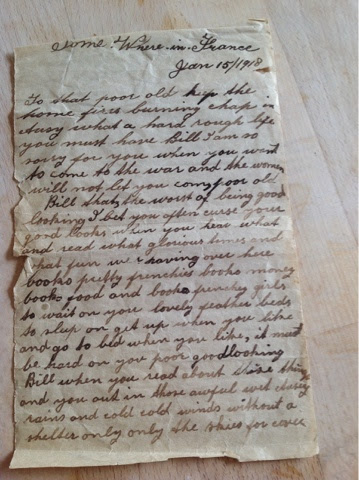 some Where in France
Jan 15/1918
To that poor old keep the
home fires burning chap
what a hard rough life
you must have Bill I am so
sorry for you when you want
to come to the war and the women
will not let you come, poor old
Bill that, the worst of being good
looking I bet you often curse your
good looks when you hear what
and read what glorious times and
what fun we having over here
books pretty frenchies books money
books food and books frenchy girls
to wait on you lovely feather beds
to sleep on get up when you like
and go to bed when you like, it must
be hard on you poor goodlooking
Bill when you read about these things
and you out in those awful wet
rains and cold cold winds without a
shelter only only the skies for cover